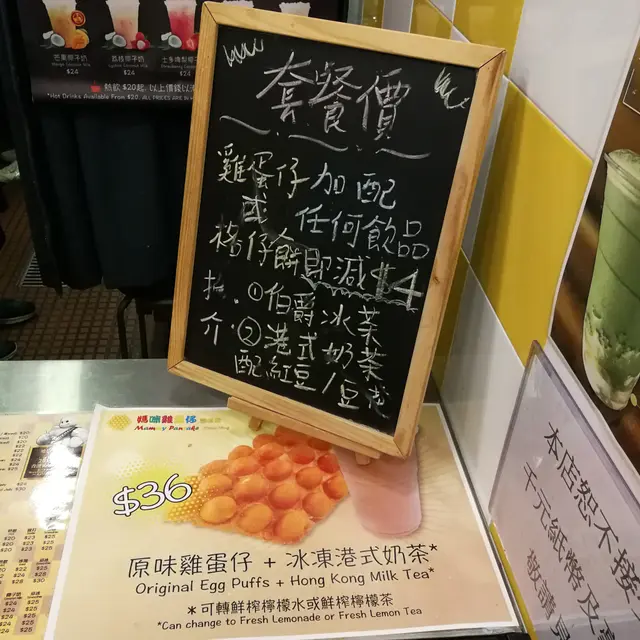 芒果椰子奶
Mango Coconut Milk
$24
荔枝椰子奶
Lychee Coconut Milk
$24
士多啤梨椰子奶
Strawberry Coconut Milk
$24
熱飲 $20起
*Hot Drinks Available From $20.
套餐價
雞蛋仔 加配
或 任何飲品
格仔餅 即減$4
①伯爵冰茶
介 ②港式奶茶
配紅豆/豆花
媽咪雞蛋仔
Mammy Pancake
$36
原味雞蛋仔 + 冰凍港式奶茶*
Original Egg Puffs + Hong Kong Milk Tea*
*可轉鮮榨檸檬水或鮮榨檸檬茶
*Can change to Fresh Lemonade or Fresh Lemon Tea
本店恕不接
千元紙幣及
敬請